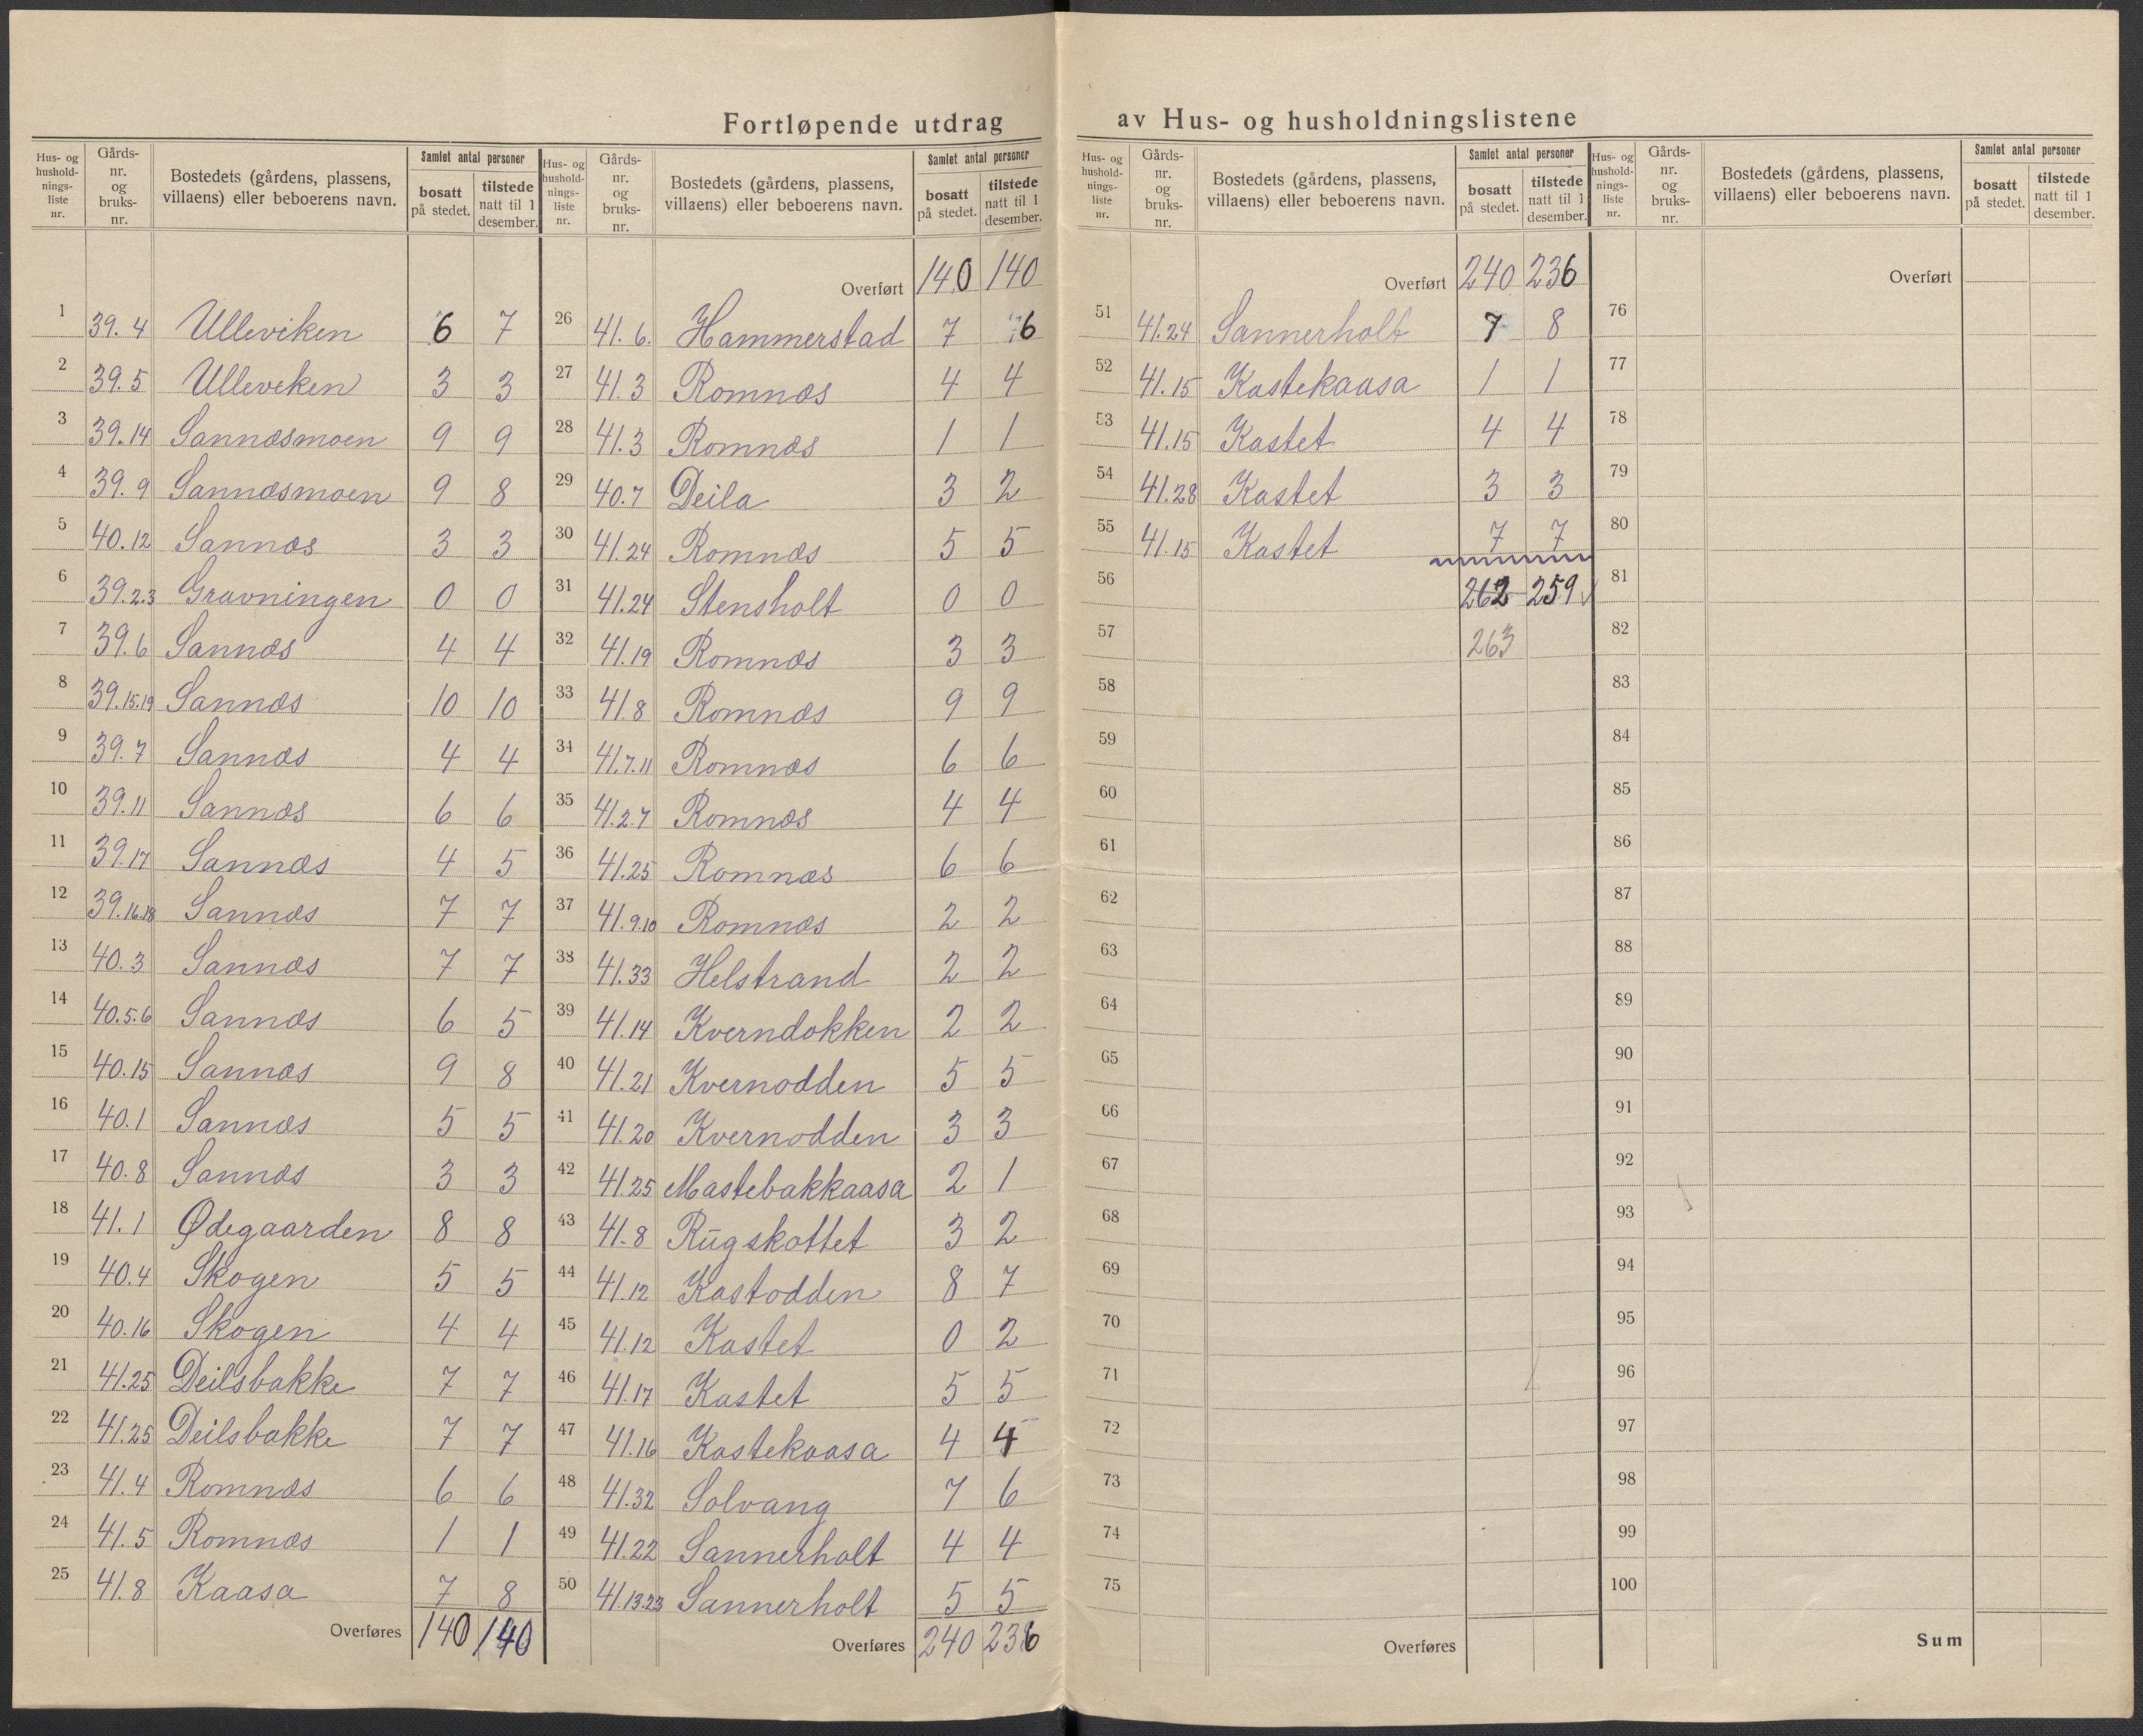 Fortløpende utdrag av Hus- og husholdningslistene
Hus- og hushold- nings- liste nr. Gårds- nr. og bruks- nr. Bostedets (gårdens, plassens, villaens) eller beboerens navn. Samlet antal personer bosatt på stedet. tilstede natt til 1 desember.
1 39.4 Ulleviken 6 7
2 39.5 Ulleveken 3 3
3 39.14 Sannæsmoen 9 9
4 39.9 Sannæsmoen 9 8
5 40.12 Sannæs 3 3
6 39.2.3 Gravningen 0 0
7 39.6 Sannæs 4 4
8 39.15.19 Sannæs 10 10
9 39.7 Sannæs 4 4
10 39.11 Sannæs 6 6
11 39.17 Sannæs 4 5
12 39.16.18 Sannæs 7 7
13 40.3 Sannæs 7 7
14 40.5.6 Sannæs 6 5
15 40.15 Sannæs 9 8
16 40.1 Sannæs 5 5
17 40.8 Sannæs 3 3
18 41.1 Ødegaarden 8 8
19 40.4 Skogen 5 5
20 40.16 Skogen 4 4
21 41.25 Deilsbakke 7 7
22 41.25 Deilsbakke 7 7
23 41.4 Romnæs 6 6
24 41.5 Romnæs 1 1
25 41.8 Kaasa 7 8
Overføres 140 140
Hus- og hushold- nings- liste nr. Gårds- nr. og bruks- nr. Bostedets (gårdens, plassens, villaens) eller beboerens navn. Samlet antal personer bosatt på stedet. tilstede natt til 1 desember.
Overført 140 140
26 41.6. Hammerstad 7 6
27 41.3 Romnæs 4 4
28 41.3 Romnæs 1 1
29 40.7 Deila 3 2
30 41.24 Romnæs 5 5
31 41.24 Stensholt 0 0
32 41.19 Romnæs 3 3
33 41.8 Romnæs 9 9
34 41.7.11 Romnæs 6 6
35 41.2.7 Romnæs 4 4
36 41.25 Romnæs 6 6
37 41.9.10 Romnæs 2 2
38 41.33 Helstrand 2 2
39 41.14 Kverndokken 2 2
40 41.21 Kvernodden 5 5
41 41.20 Kvernodden 3 3
42 41.25 Mastebakkaasa 2 1
43 41.8 Rugskottet 3 2
44 41.12 Kastodden 8 7
45 41.12 Kastet 0 2
46 41.17 Kastet 5 5
47 41.16 Kastekaasa 4 4
48 41.32 Solvang 7 6
49 41.22 Sannerholt 4 4
50 41.13.23 Sannerholt 5 5
Overføres 240 236
Hus- og hushold- nings- liste nr. Gårds- nr. og bruks- nr. Bostedets (gårdens, plassens, villaens) eller beboerens navn. Samlet antal personer bosatt på stedet. tilstede natt til 1 desember.
Overført 240 236
51 41.24 Sannerholt 7 8
52 41.15 Kastekaasa 1 1
53 41.15 Kastet 4 4
54 41.28 Kastet 3 3
55 41.15 Kastet 7 7
56 262 259
57 263
58
59
60
61
62
63
64
65
66
67
68
69
70
71
72
73
74
75
Overføres
Hus- og hushold- nings- liste nr. Gårds- nr. og bruks- nr. Bostedets (gårdens, plassens, villaens) eller beboerens navn. Samlet antal personer bosatt på stedet. tilstede natt til 1 desember.
Overført
76
77
78
79
80
81
82
83
84
85
86
87
88
89
90
91
92
93
94
95
96
97
98
99
100
Sum